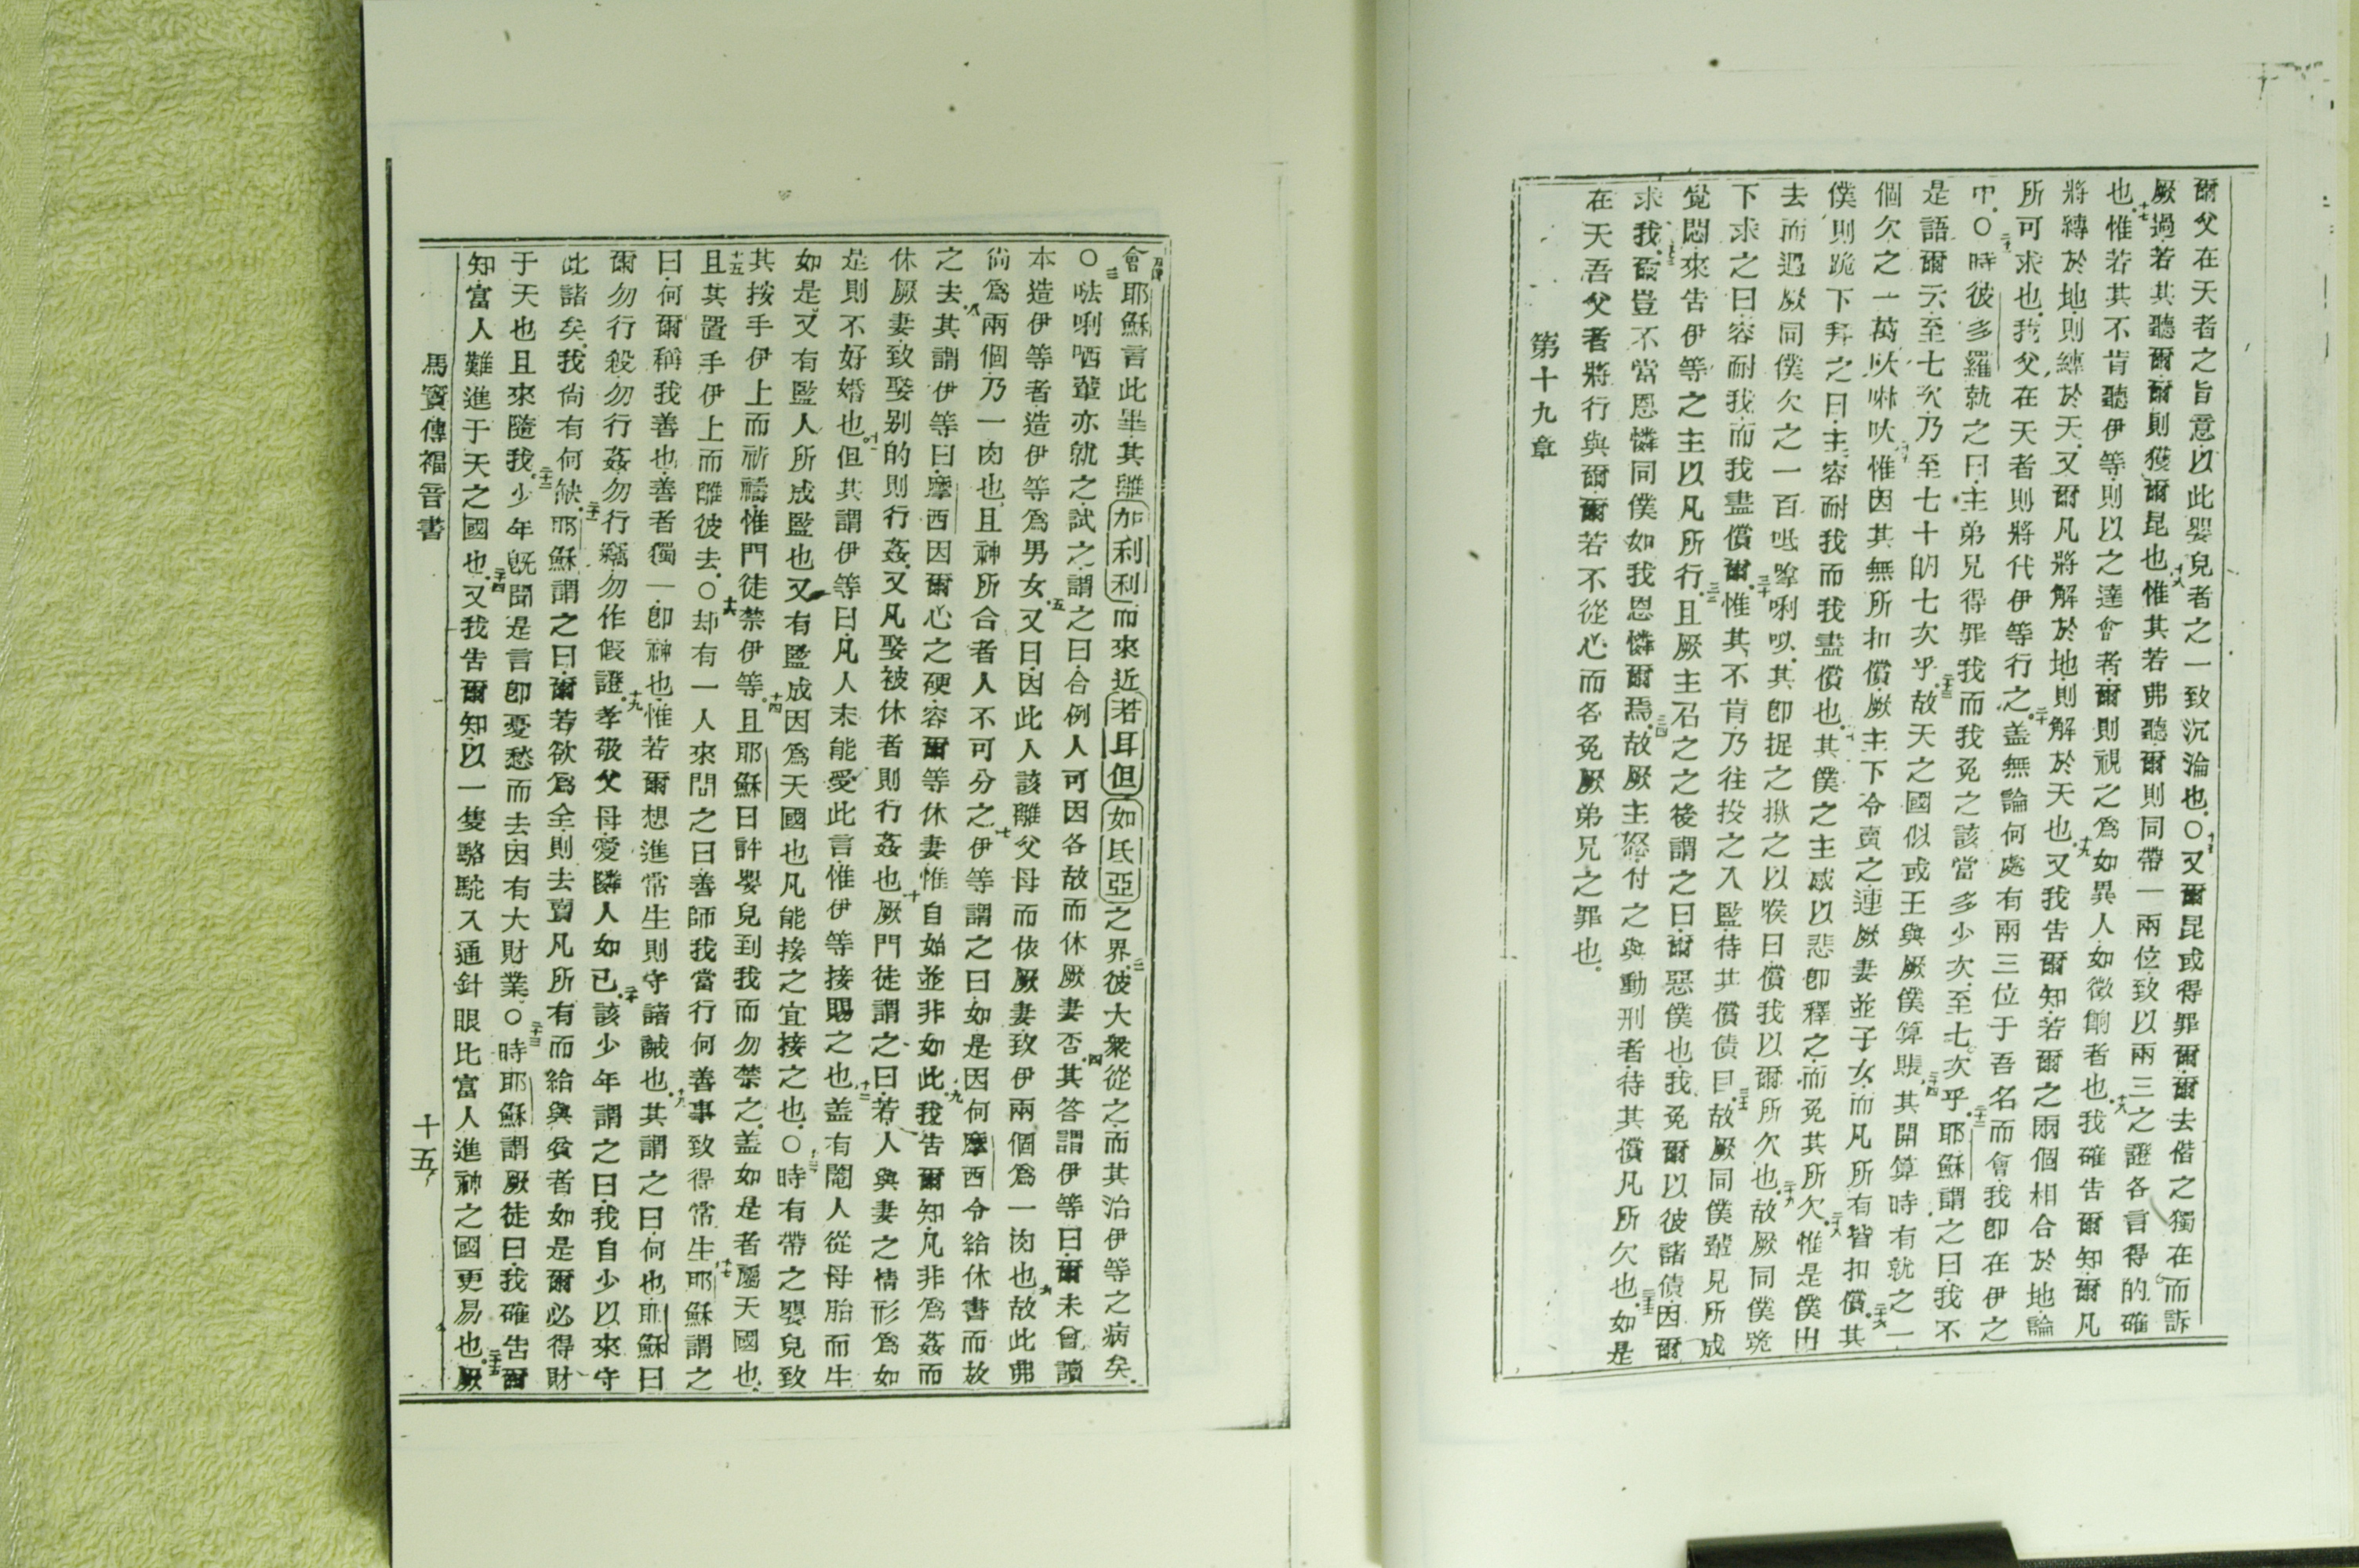 爾父在天者之旨意以此嬰兒者之一致沉淪也○又爾昆或得罪爾爾去偕之獨在而訴
厥過若其聽爾爾則獲爾昆也惟其若弗聽爾則同帶一兩位致以兩三之證各言得的確
也惟若其不肯聽伊等則以之達會者爾則視之爲如異人如徵餉者也我確告爾知爾凡
將縛於地則縛於天又爾凡將解於地則解於天也又我告爾知若爾之兩個相合於地論
所可求也我父在天者則將代伊等行之蓋無論何處有兩三位于吾名而會我卽在伊之
中○時彼多羅就之曰主弟兄得罪我而我免之該當多少次至七次乎耶穌謂之曰我不
是語爾云至七次乃至七十的七次乎故天之國似或王與厥僕算賬其開算時有就之一
個欠之一萬呔啉呔惟因其無所扣償厥主下令賣之連厥妻並子女而凡所有皆扣償其
僕則跪下拜之曰主容耐我而我盡償也其僕之主感以悲卽釋之而免其所欠惟是僕出
去而遇厥同僕欠之一百呧嗱唎㕥其卽捉之揪之以喉曰償我以爾所欠也故厥同僕跪
下求之曰容耐我而我盡償爾惟其不肯乃往投之入監待其償債目故厥同僕輩見所成
覺悶來告伊等之主以凡所行且厥主召之之後謂之曰爾惡僕也我免爾以彼諸債因爾
求我爾豈不當恩憐同僕如我恩憐爾焉故厥主怒付之與動刑者待其償凡所欠也如是
在天吾父者將行與爾爾若不從心而各免厥弟兄之罪也
第十九章
會耶穌言此畢其離加利利而來近若耳但如氏亞之界彼大衆從之而其治伊等之病矣
○𠵽唎哂輩亦就之試之謂之曰合例人可因各故而休厥妻否其答謂伊等曰爾未曾讀
本造伊等者造伊等爲男女又曰因此人該離父母而依厥妻致伊兩個爲一肉也故此弗
尚爲兩個乃一肉也且神所合者人不可分之伊等謂之曰如是因何摩西令給休書而放
之去其謂伊等曰摩西因爾心之硬容爾等休妻惟自始並非如此我告爾知凡非爲姦而
休厥妻致娶别的則行姦又凡娶被休者則行姦也厥門徒謂之曰若人與妻之情形爲如
是則不好婚也但其謂伊等曰凡人未能愛此言惟伊等接賜之也蓋有閹人從母胎而生
如是又有監人所成監也又有監成因爲天國也凡能接之宜接之也○時有帶之嬰兒致
其按手伊上而祈禱惟門徒禁伊等且耶穌曰許嬰兒到我而勿禁之蓋如是者屬天國也
且其置手伊上而離彼去○却有一人來問之曰善師我當行何善事致得常生耶穌謂之
曰何爾稱我善也善者獨一卽神也惟若爾想進常生則守諸誡也其謂之曰何也耶穌曰
爾勿行殺勿行姦勿行竊勿作假證孝敬父母愛隣人如己該少年謂之曰我自少以來守
此諸矣我尚有何缺耶穌謂之曰爾若欲爲全則去賣凡所有而給與貧者如是爾必得財
于天也且來隨我少年旣聞是言卽憂愁而去因有大財業○時耶穌謂厥徒曰我確告爾
知富人難進于天之國也又我告爾知以一隻駱駝入通針眼比富人進神之國更易也厥
馬竇傳福音書
十五